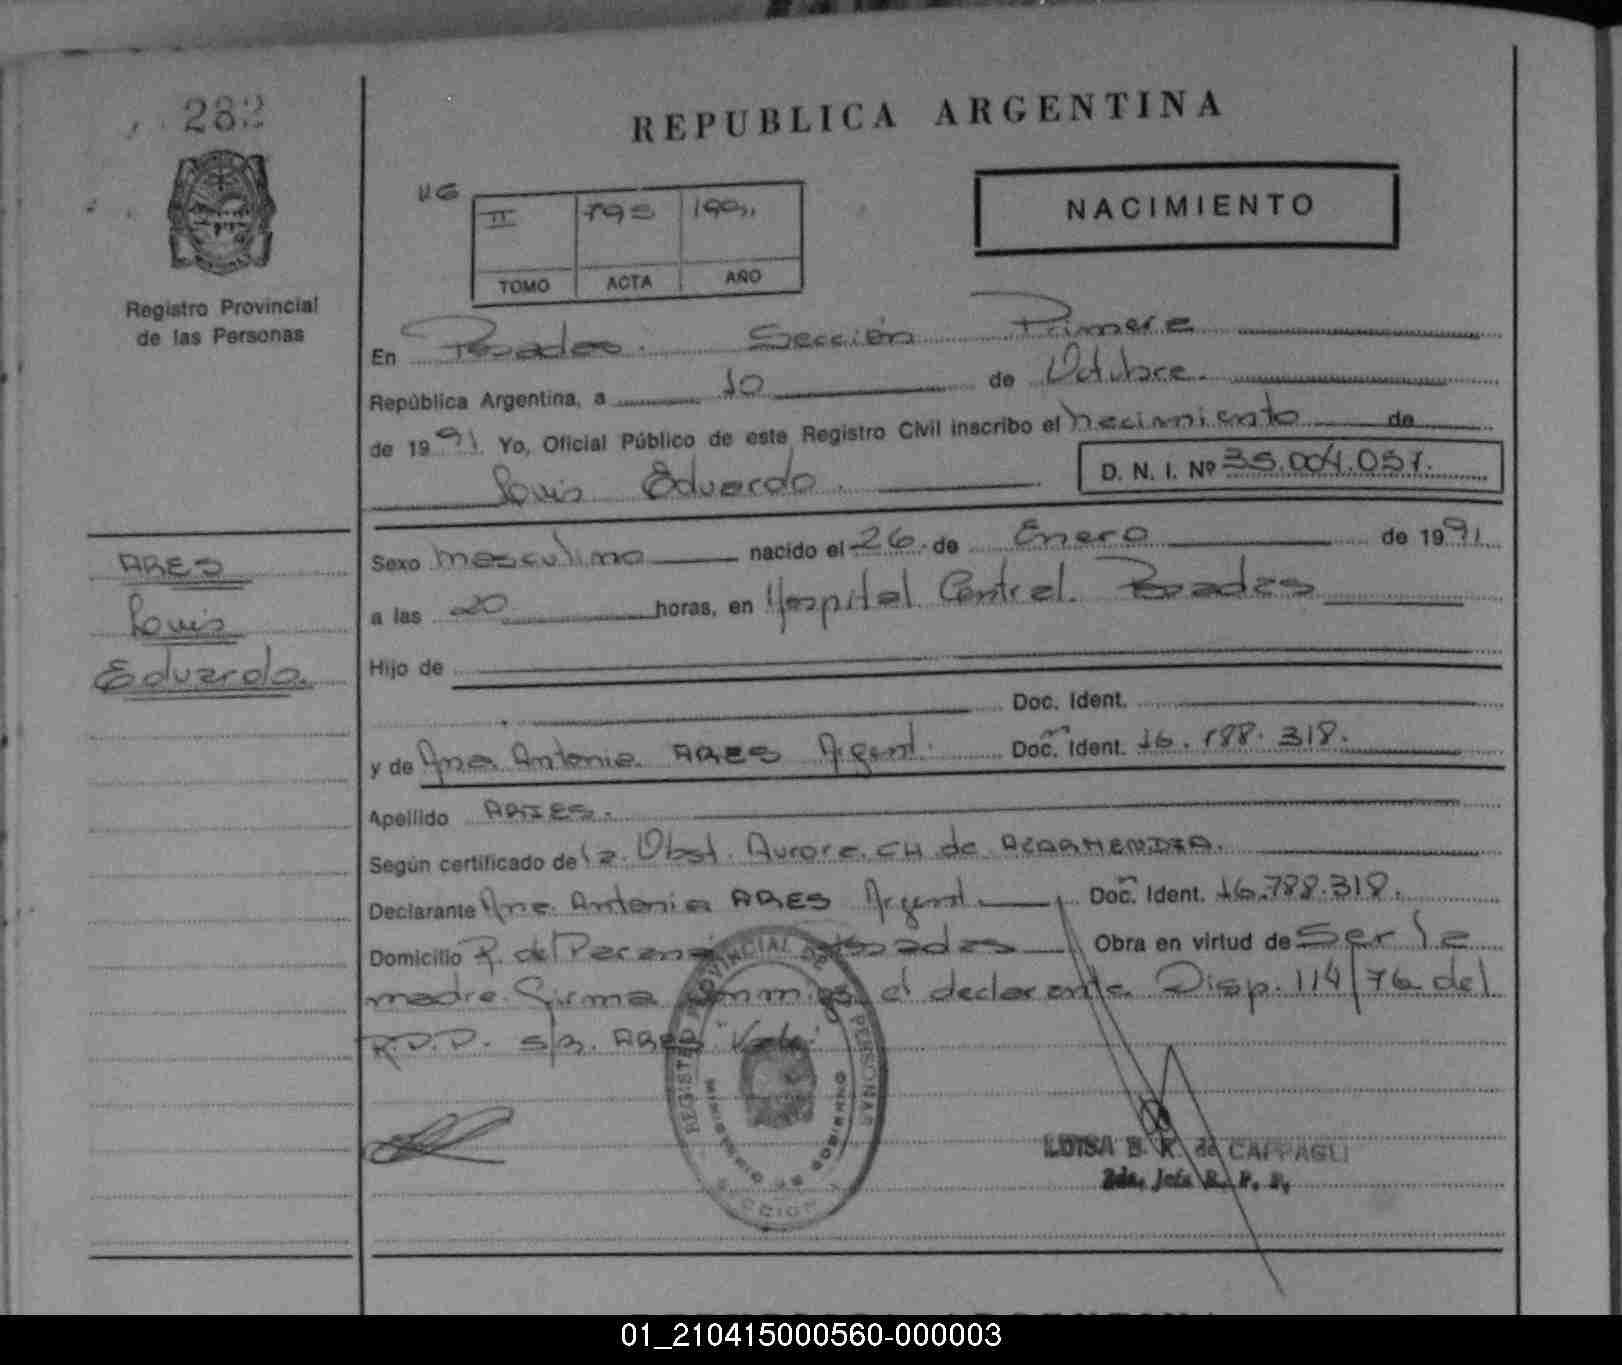 282
REPUBLICA ARGENTINA
NACIMIENTO
II 795 1991
TOMO ACTA AÑO
Registro Provincial
de las Personas
En Posadas. Sección Primera
República Argentina, a 10 de Octubre.
de 1991. Yo, Oficial Público de este Registro Civil inscribo el nacimiento de
Louis Eduardo. D. N. I. Nº 35.004.057.
ARES
Louis
Eduardo.
Sexo masculino nacido el 26 de Enero de 1991
a las 20 horas, en Hospital Central. Posadas
Hijo de
Doc. Ident.
y de Ana Antonia ARES Argent. Doc. Ident. 16.788.318.
Apellido ARES.
Según certificado de la Obst. Aurora CH de
Declarante Ana Antonia ARES Argent. Doc. Ident. 16.788.318.
Domicilio R. del Posadas Obra en virtud de Ser la
madre. Firma conmigo el declarante. Disp. 114/76 del
R.P.P. s/r. ARES Vale.
REGISTRO PROVINCIAL DE PERSONAS
MINISTERIO DE GOBIERNO
LUISA B. K. de CAPPAGLI
2da. Jefa R. P. P.
01_210415000560-000003